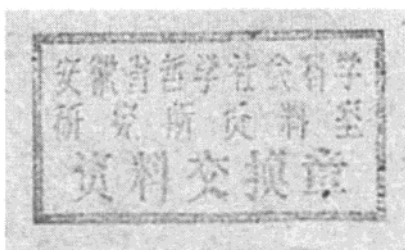 安徽省哲学社会科学
研究所资料室
资料交换章